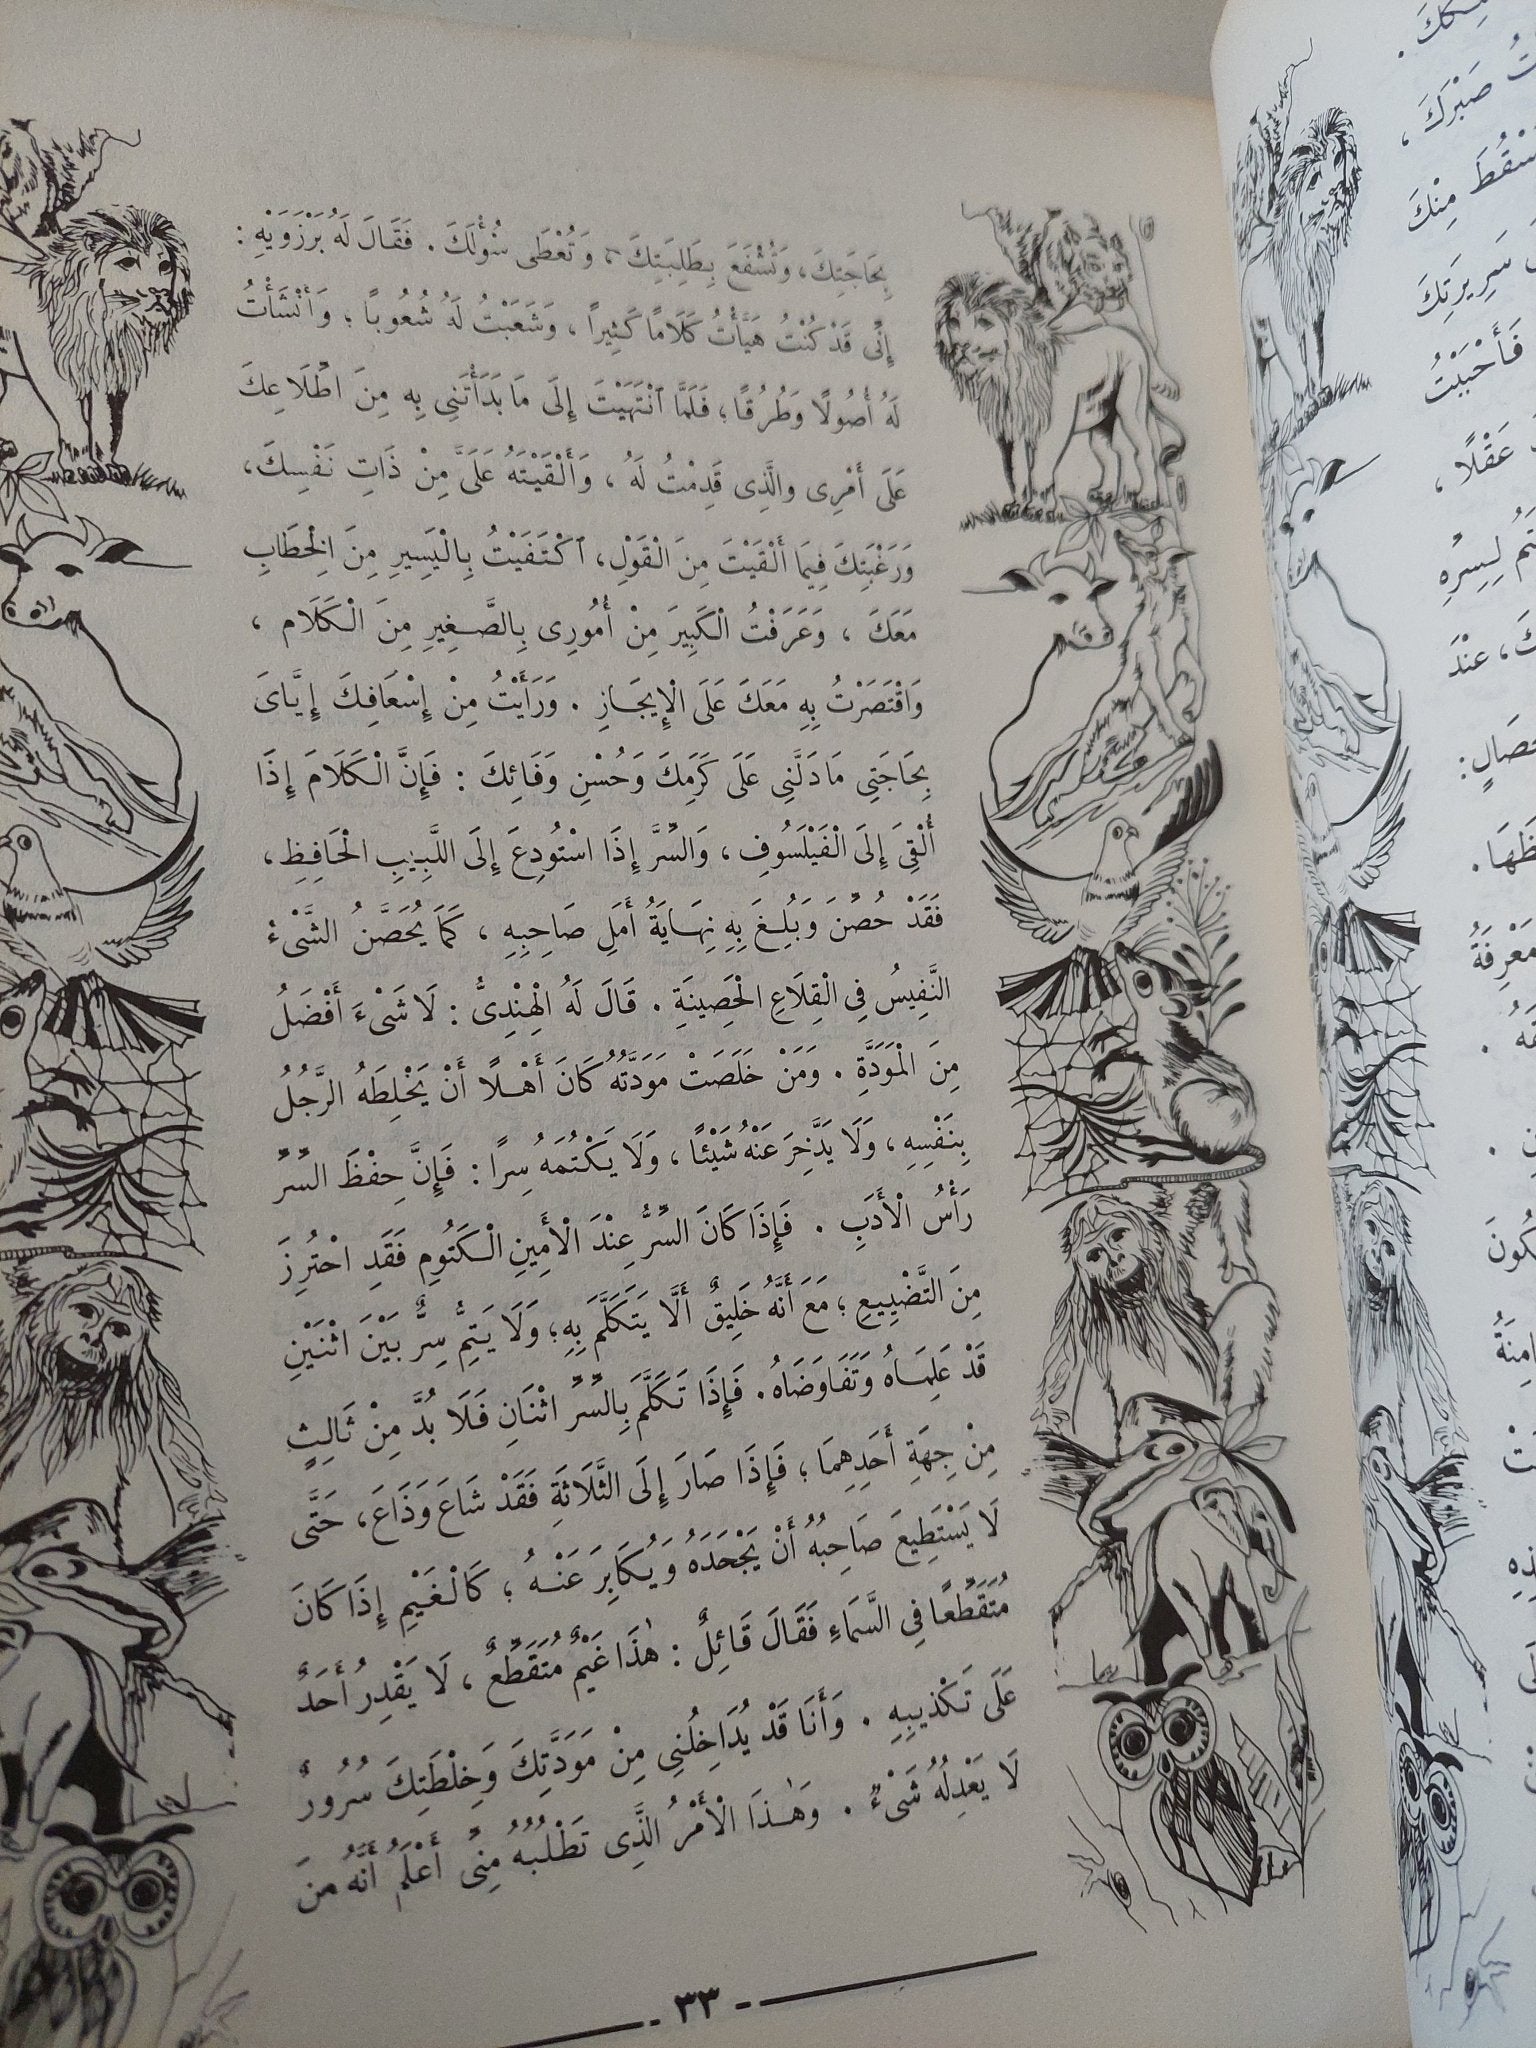 بِحَاجَتِكَ، وَتُشْفَعَ بِطَلِبَتِكَ، وَتُعْطَى سُؤْلَكَ. فَقَالَ لَهُ بَرْزَوَيْهِ:
إِنِّى قَدْ كُنْتُ هَيَّأْتُ كَلَامًا كَثِيرًا، وَشَعَبْتُ لَهُ شُعُوبًا؛ وَأَنْشَأْتُ
لَهُ أُصُولًا وَطُرُقًا؛ فَلَمَّا ٱنْتَهَيْتَ إِلَى مَا بَدَأْتَنِى بِهِ مِنَ اطِّلَاعِكَ
عَلَى أَمْرِى والَّذِى قَدِمْتُ لَهُ، وَأَلْقَيْتَهُ عَلَىَّ مِنْ ذَاتِ نَفْسِكَ،
وَرَغْبَتِكَ فِيمَا أَلْقَيْتَ مِنَ الْقَوْلِ، ٱكْتَفَيْتُ بِالْيَسِيرِ مِنَ الْخِطَابِ
مَعَكَ، وَعَرَفْتُ الْكَبِيرَ مِنْ أُمُورِى بِالصَّغِيرِ مِنَ الْكَلَامِ،
وَاقْتَصَرْتُ بِهِ مَعَكَ عَلَى الْإِيجَازِ. وَرَأَيْتُ مِنْ إِسْعَافِكَ إِيَّاىَ
بِحَاجَتِى مَا دَلَّنِى عَلَى كَرَمِكَ وَحُسْنِ وَفَائِكَ: فَإِنَّ الْكَلَامَ إِذَا
أُلْقِىَ إِلَى الْفَيْلَسُوفِ، وَالسِّرَّ إِذَا اسْتُودِعَ إِلَى اللَّبِيبِ الْحَافِظِ،
فَقَدْ حُصِّنَ وَبُلِغَ بِهِ نِهَايَةُ أَمَلِ صَاحِبِهِ، كَمَا يُحَصَّنُ الشَّىْءُ
النَّفِيسُ فِى الْقِلَاعِ الْحَصِينَةِ. قَالَ لَهُ الْهِنْدِىُّ: لَا شَىْءَ أَفْضَلُ
مِنَ الْمَوَدَّةِ. وَمَنْ خَلَصَتْ مَوَدَّتُهُ كَانَ أَهْلًا أَنْ يَخْلِطَهُ الرَّجُلُ
بِنَفْسِهِ، وَلَا يَدَّخِرَ عَنْهُ شَيْئًا، وَلَا يَكْتُمَهُ سِرًا: فَإِنَّ حِفْظَ السِّرِّ
رَأْسُ الْأَدَبِ. فَإِذَا كَانَ السِّرُّ عِنْدَ الْأَمِينِ الْكَتُومِ فَقَدِ احْتُرِزَ
مِنَ التَّضْيِيعِ؛ مَعَ أَنَّهُ خَلِيقٌ أَلَّا يَتَكَلَّمَ بِهِ؛ وَلَا يَتِمُّ سِرٌّ بَيْنَ اثْنَيْنِ
قَدْ عَلِمَاهُ وَتَفَاوَضَاهُ. فَإِذَا تَكَلَّمَ بِالسِّرِّ اثْنَانِ فَلَا بُدَّ مِنْ ثَالِثٍ
مِنْ جِهَةِ أَحَدِهِمَا؛ فَإِذَا صَارَ إِلَى الثَّلَاثَةِ فَقَدْ شَاعَ وَذَاعَ، حَتَّى
لَا يَسْتَطِيعَ صَاحِبُهُ أَنْ يَجْحَدَهُ وَيُكَابِرَ عَنْهُ؛ كَالْغَيْمِ إِذَا كَانَ
مُتَقَطِّعًا فِى السَّمَاءِ فَقَالَ قَائِلٌ: هٰذَا غَيْمٌ مُتَقَطِّعٌ، لَا يَقْدِرُ أَحَدٌ
عَلَى تَكْذِيبِهِ. وَأَنَا قَدْ يُدَاخِلُنِى مِنْ مَوَدَّتِكَ وَخِلْطَتِكَ سُرُورٌ
لَا يَعْدِلُهُ شَىْءٌ. وَهٰذَا الْأَمْرُ الَّذِى تَطْلُبُهُ مِنِّى أَعْلَمُ أَنَّهُ مِنَ
٣٣
صَبْرَكَ،
مِنْكَ
سَرِيرَتِكَ
فَأَحْبَبْتُ
عَقْلًا،
لِسِرِّهِ
عِنْدَ